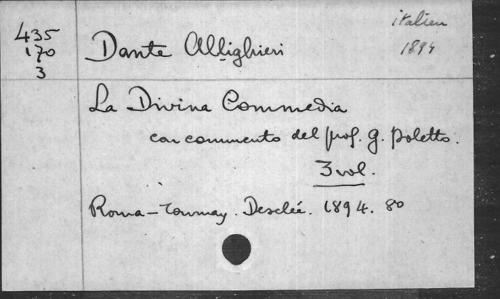 435
170
3
Dante Allighieri
italien
1894
La Divina Commedia
con commento del prof. G. Poletto.
3 vol.
Roma-Tournay. Desclée. 1894. 80